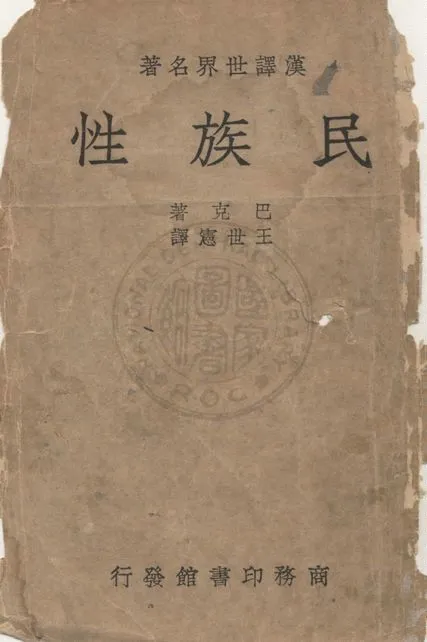 漢譯世界名著
民族性
巴克著
王世憲譯
NATIONAL CENTRAL LIBRARY
R.O.C.
國家圖書館
商務印書館發行